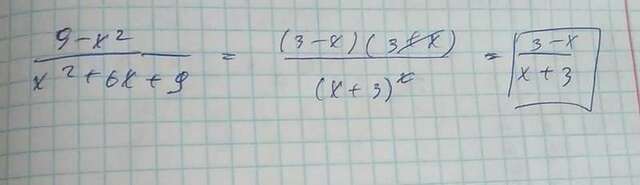 (9-x²)/(x²+6x+9) = ((3-x)(3+x))/((x+3)²) = (3-x)/(x+3)